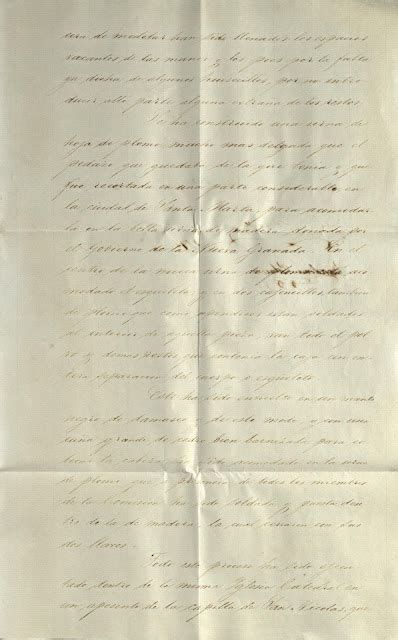 cera de modelar han sido llenados los espacios
vacantes de las manos y los pies por la falta
ya dicha de algunos huesecillos, por no intro
ducir alto parte alguna extraña de los restos.
Se ha construido una urna de
hoja de plomo mucho mas delgada que el
pedazo que quedaba de la que tenia y que
fue recortada en una parte considerable en
la ciudad de Santa Marta para acomodar
la en la bella urna de madera donada por
el Gobierno de la Nueva Granada. En el
centro de la nueva urna de plomo aco
modado el esqueleto, y en dos cajoncillos tambien
de plomo que como apendices estan soldados
al interior de aquella pieza, van todo el pol
vo y demas restos que contenia la caja con en
tera separacion del cuerpo o esqueleto.
Este ha sido envuelto en un manto
negro de damasco y de este modo y con una
cuña grande de cedro bien barnizada para co
locar la cabeza ha sido acomodado en la urna
de plomo que a presencia de todos los miembros
de la Comision ha sido soldada y puesta den
tro de la de madera la cual cerraron con sus
dos llaves.
Todo este proceso ha sido ejecu
tado dentro de la misma Iglesia Catedral en
un aposento de la capilla de San Nicolas, que